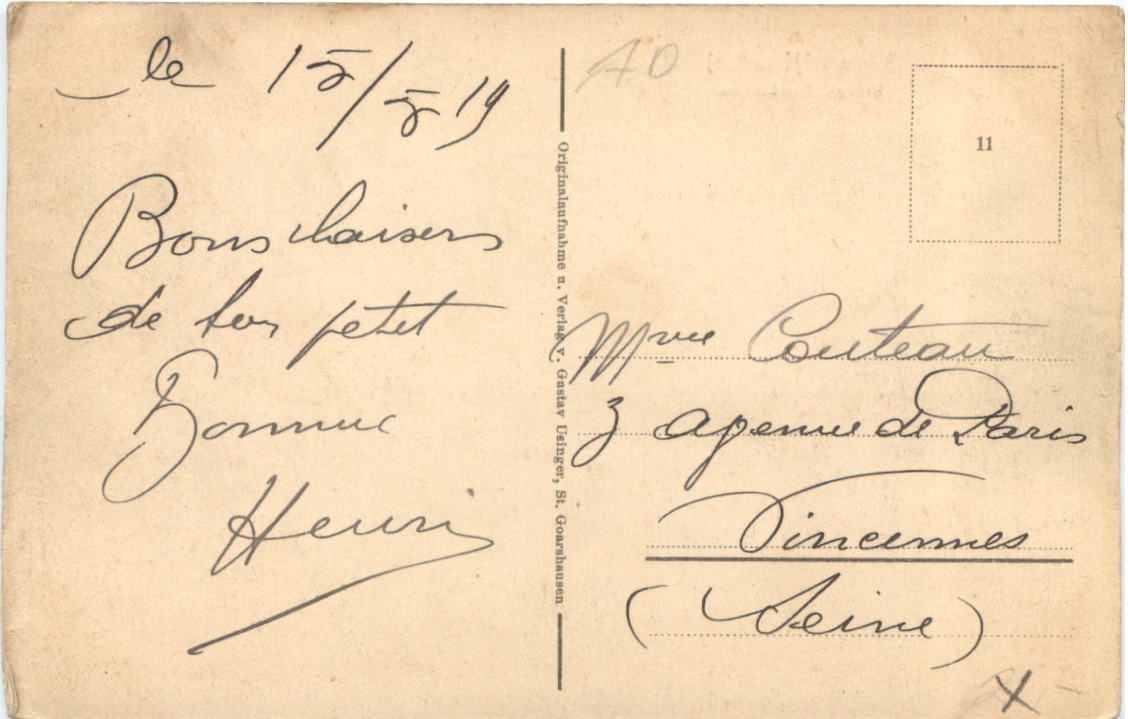 le 15/5 19
Bons baisers
de ton petit
Homme
Henri
Originalaufnahme u. Verlag v. Gustav Usinger, St. Goarshausen
AO
11
Mme Couteau
3 avenue de Paris
Vincennes
(Seine)